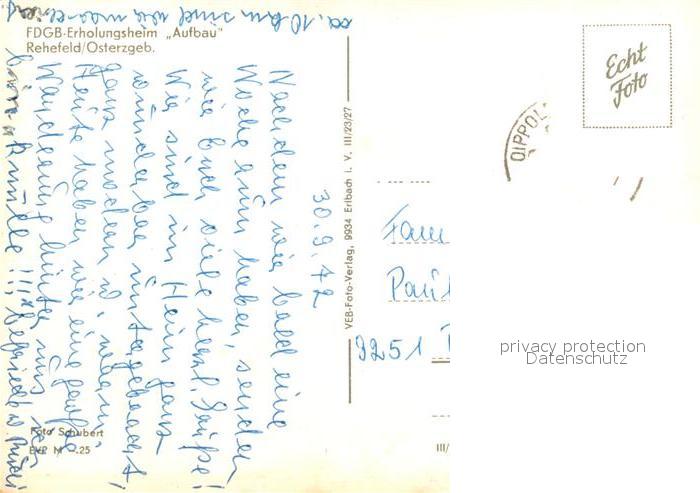 FDGB-Erholungsheim „Aufbau"
Rehefeld/Osterzgeb.
30.9.72
Nachdem wir bald eine
Woche rum haben, senden
wir Euch viele herzl. Grüße!
Wir sind im Heim ganz
wunderbar untergebracht!
ganz modern u.
Heute haben wir eine große
Wanderung hinter uns
ca. 10 km sind wir
VEB-Foto-Verlag, 9934 Erlbach i. V. III/23/27
Echt
Foto
DIPPOL
Fam
Paul
9251
Foto Schubert
EVP M -.25
III/
privacy protection
Datenschutz